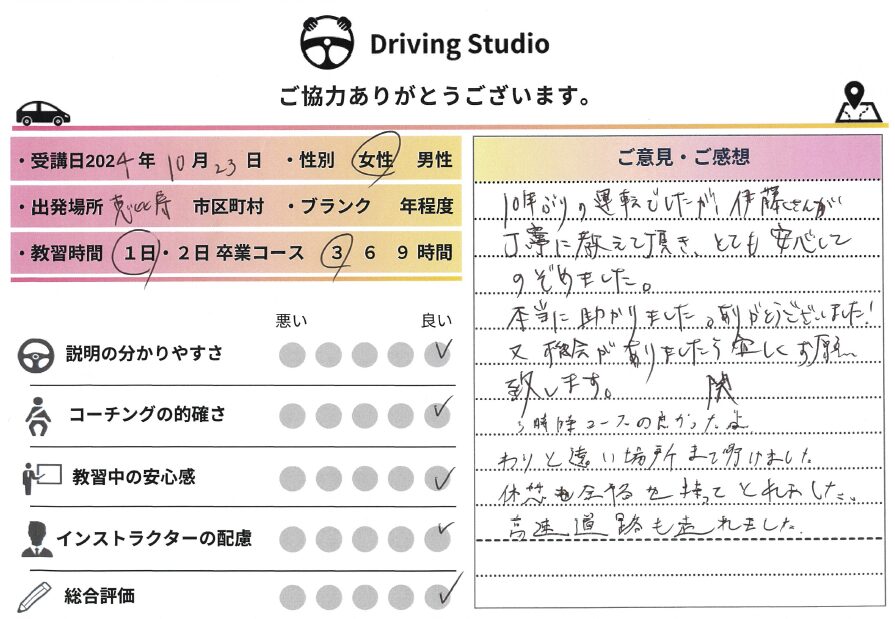 Driving Studio
ご協力ありがとうございます。
・受講日2024年 10月23日 ・性別 女性 男性
・出発場所 恵比寿 市区町村 ・ブランク 年程度
・教習時間 1日・2日 卒業コース 3 6 9 時間
悪い 良い
説明の分かりやすさ
コーチングの的確さ
教習中の安心感
インストラクターの配慮
総合評価
ご意見・ご感想
10年ぶりの運転でしたが、伊藤さんが
丁寧に教えて頂き、とても安心して
のぞめました。
本当に助かりました。ありがとうございました!
又 機会がありましたら宜しくお願い
致します。 関
3時間コースの良かった
わりと遠い場所まで行けました
休憩も余裕を持ってとれました。
高速道路も走れました。